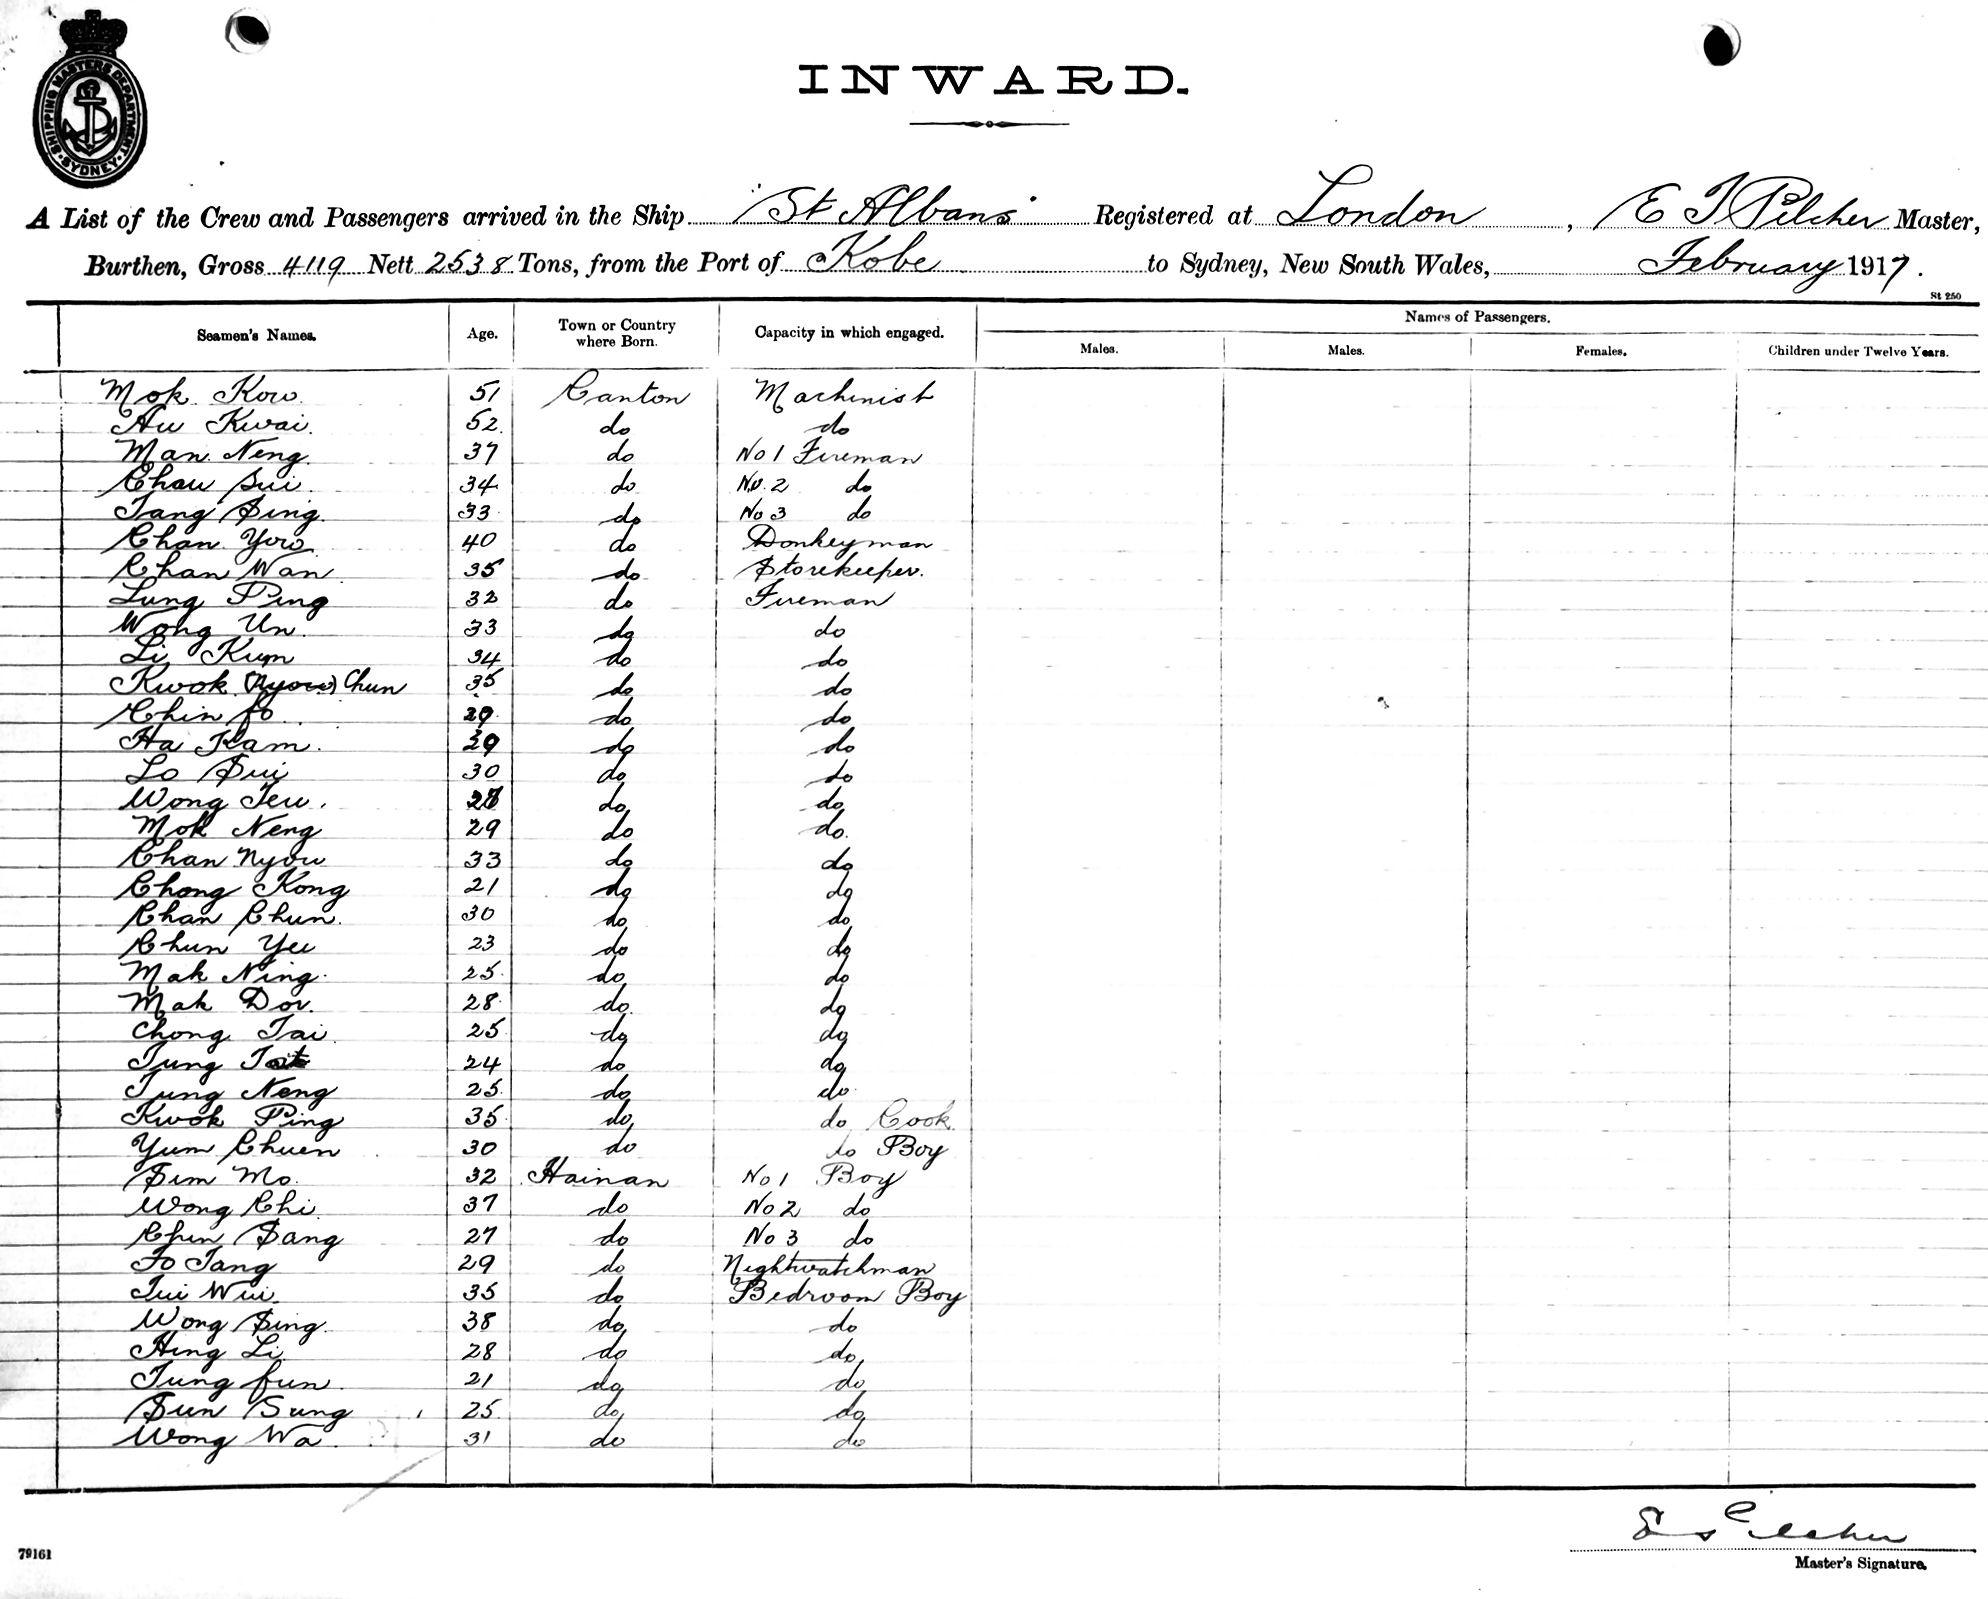 SHIPPING MASTERS DEPARTMENT
SYDNEY
INWARD.
A List of the Crew and Passengers arrived in the Ship "St Albans" Registered at London, E T Pilcher Master,
Burthen, Gross 4119 Nett 2538 Tons, from the Port of Kobe to Sydney, New South Wales, February 1917.
St 250
Seamen's Names. Age. Town or Country where Born. Capacity in which engaged. Names of Passengers.
Males. Males. Females. Children under Twelve Years.
Mok Kow 51 Canton Machinist
Au Kwai 52 do do
Man Neng 37 do No 1 Fireman
Chau Sui 34 do No 2 do
Tang Sing 33 do No 3 do
Chan Yow 40 do Donkeyman
Chan Wan 35 do Storekeeper.
Lung Ping 32 do Fireman
Wong Un 33 do do
Li Kum 34 do do
Kwok (Nyow) Chun 35 do do
Chin fo 29 do do
Ha Kam 29 do do
Lo Sui 30 do do
Wong Teu do do
Mok Neng 29 do do.
Chan Nyow 33 do do
Chong Kong 21 do do
Chan Chun 30 do do
Chun Yei 23 do do
Mak Ning 25 do do
Mak Dor 28 do do
Chong Tai 25 do do
Tung Tat 24 do do
Tung Neng 25 do do
Kwok Ping 35 do do Cook
Yum Chuen 30 do do Boy
Sim Mo 32 Hainan No 1 Boy
Wong Chi 37 do No 2 do
Chin Sang 27 do No 3 do
Fo Tang 29 do Nightwatchman
Tui Wui 35 do Bedroom Boy
Wong Sing 38 do do
Hing Li 28 do do
Tung fun 21 do do
Sun Sung 25 do do
Wong Wa 31 do do
E T Pilcher
79161
Master's Signature.